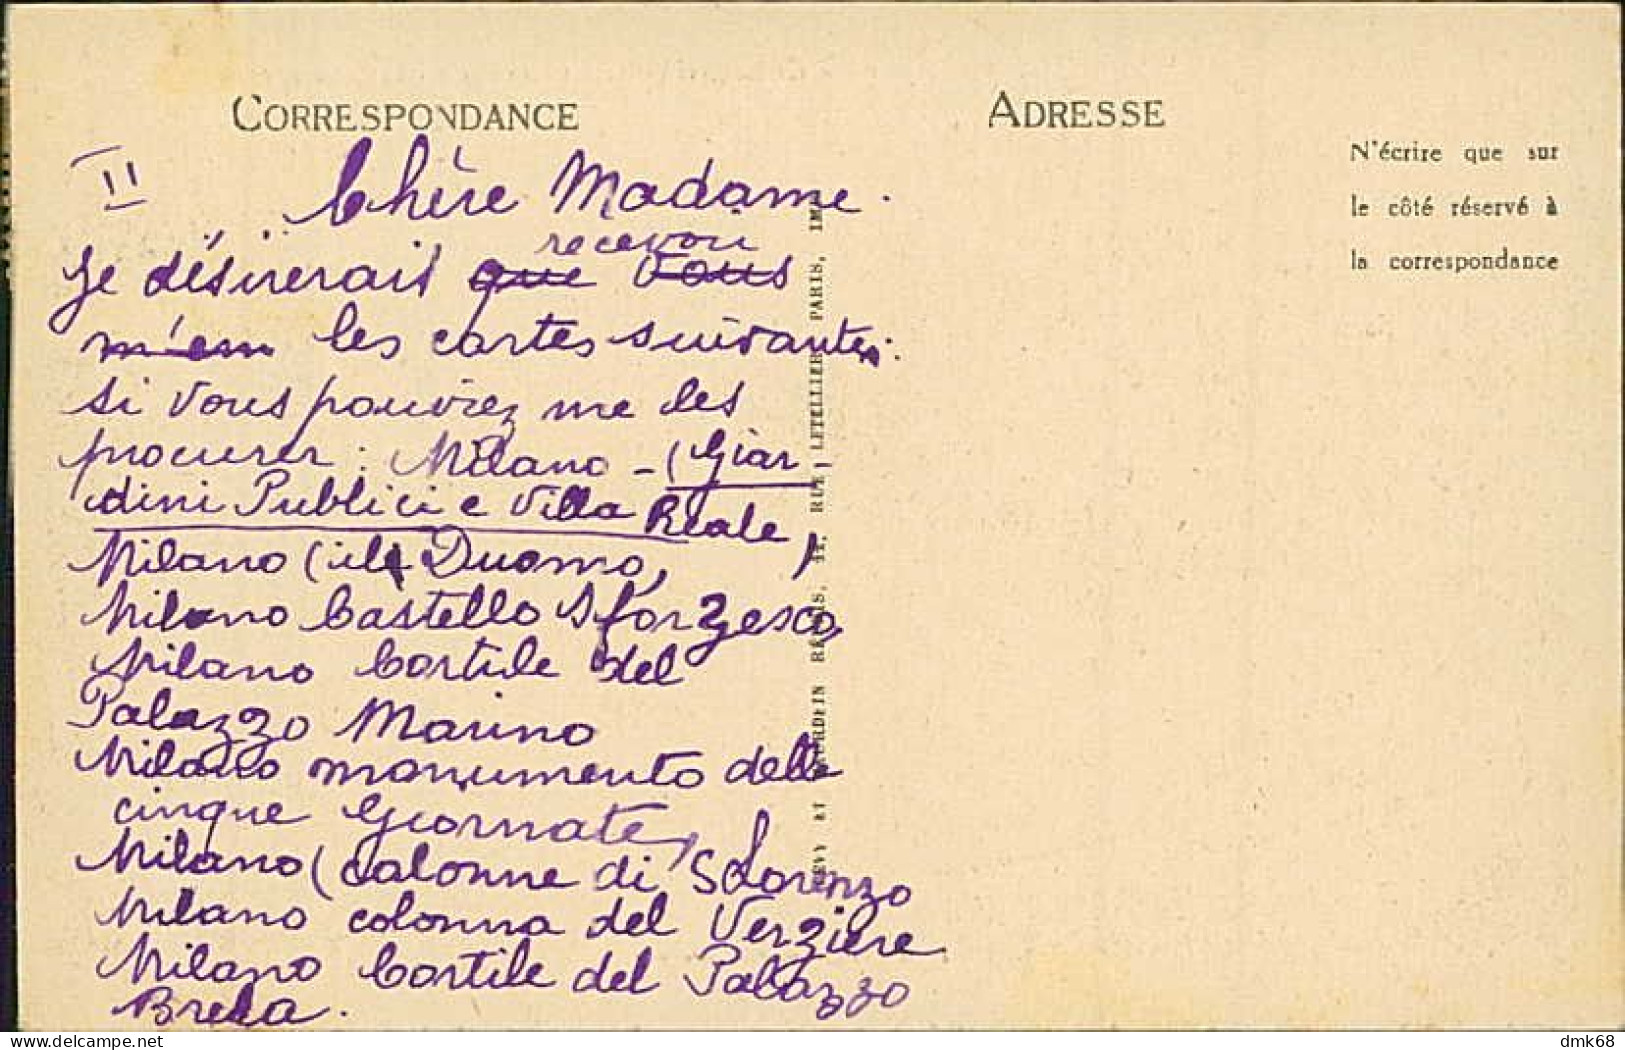 CORRESPONDANCE
ADRESSE
N'écrire que sur
le côté réservé à
la correspondance
II
Chère Madame.
recevoir
Je désirerais que vous
m'em les cartes suivantes.
si vous pouviez me les
procurer : Milano - (Giar-
dini Publici e Villa Reale,
Milano (il Duomo,
Milano Castello Sforzesco,
Milano Cortile del
Palazzo Marino
Milano monumento delle
cinque Giornate,
Milano (colonne di S Lorenzo
Milano colonna del Verziere
Milano Cortile del Palazzo
Brera.
LEVY ET NEURDEIN RÉUNIS, 44, RUE LETELLIER, PARIS, IMP
dmk68